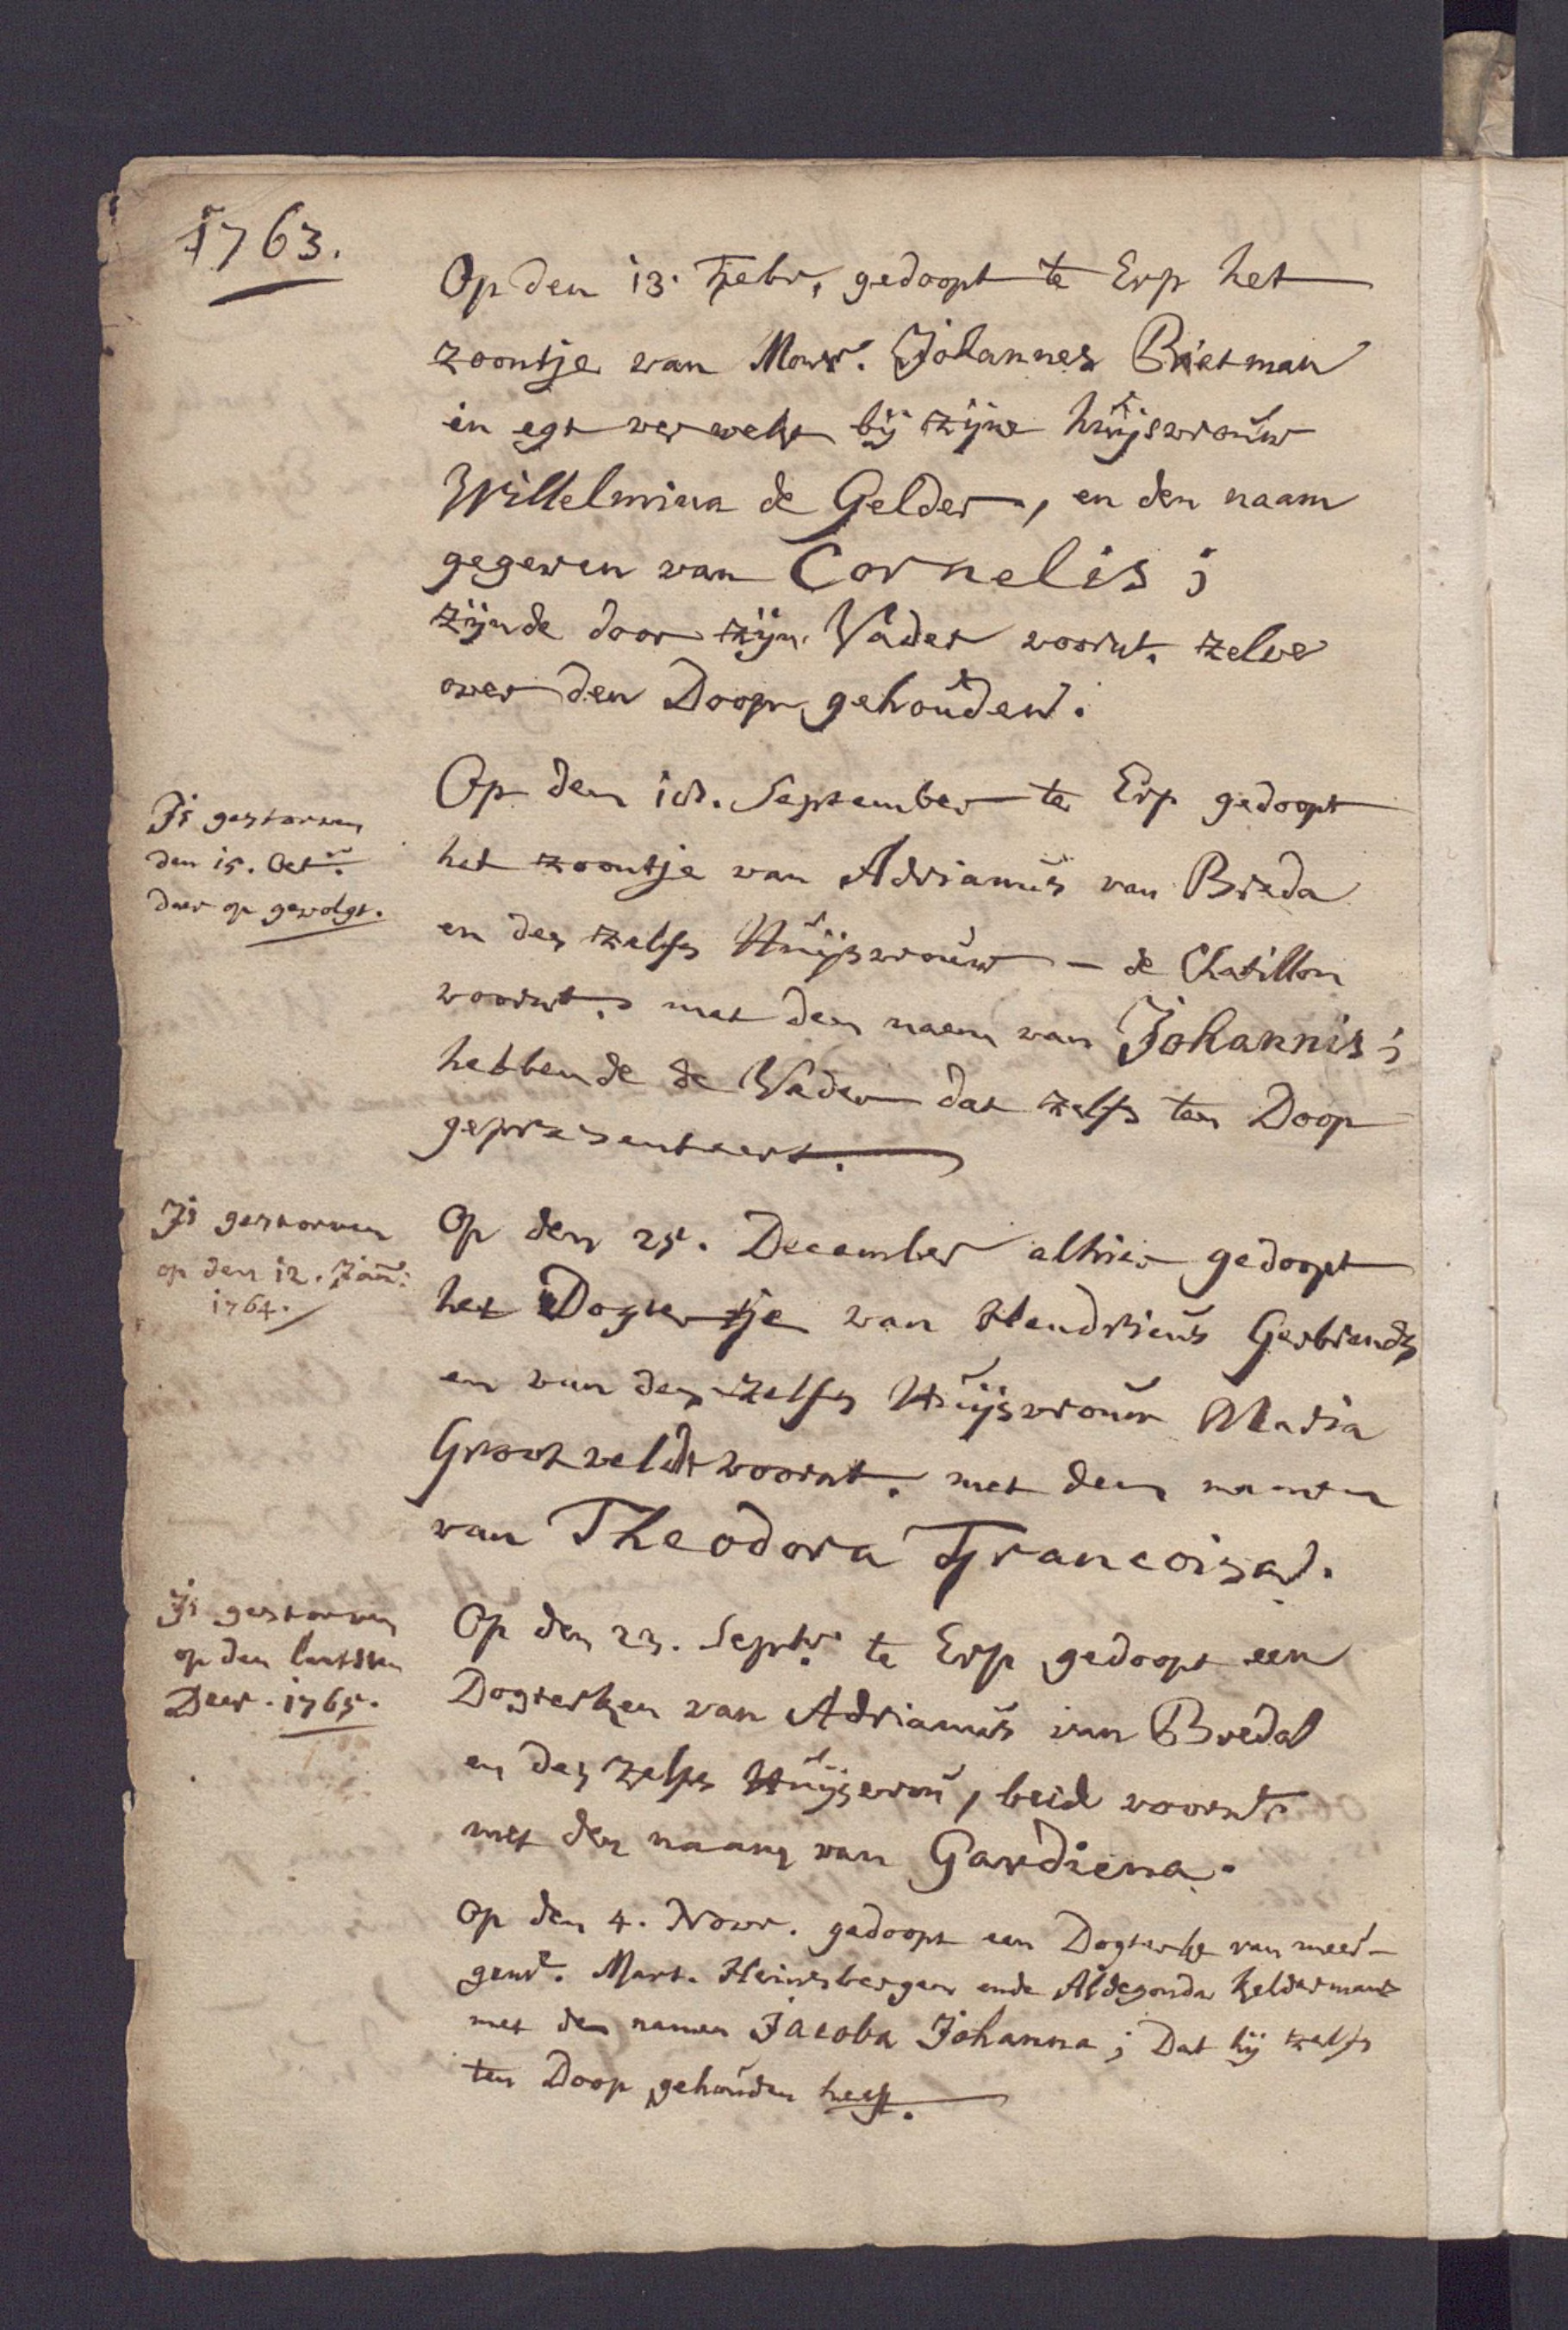 1763.
Op den 13. Febr, gedoopt te Erp het
zoontje van Monsr. Johannes Bietman
in egt verwekt bij zijne huijsvrouw
Willelmina de Gelder, en den naam
gegeven van Cornelis;
zijnde door zijn Vader voornt. zelve
over den Doop gehouden.
Op den 18. September te Erp gedoopt
het zoontje van Adrianus van Breda
en des zelfs Huijsvrouw - de Chatillon
voornt, met den naem van Johannis;
hebbende de Vader dat zelfs ten Doop
gepresenteert.
Is gestorven
den 15. Octr.
daer op gevolgt.
Op den 25. December alhier gedoopt
het Dogtertje van Hendricus Gerbrands
en van des zelfs Huijsvrouw Maria
Grootveldt voornt. met den namen
van Theodora Francoisa.
Is gestorven
op den 12. Jann:
1764.
Op den 23. Septr. te Erp gedoopt een
Dogterken van Adrianus van Bredal
en des zelfs Huijsvrou, beid voornt.
met den naam van Gardiena.
Is gestorven
op den laatsten
Decr. 1765.
Op den 4. Novr. gedoopt een Dogterke van meer-
gend. Mart. Heinsbergen ende Aldegonda Keldermans
met den namen Jacoba Johanna; Dat hij zelfs
ten Doop gehouden heeft.